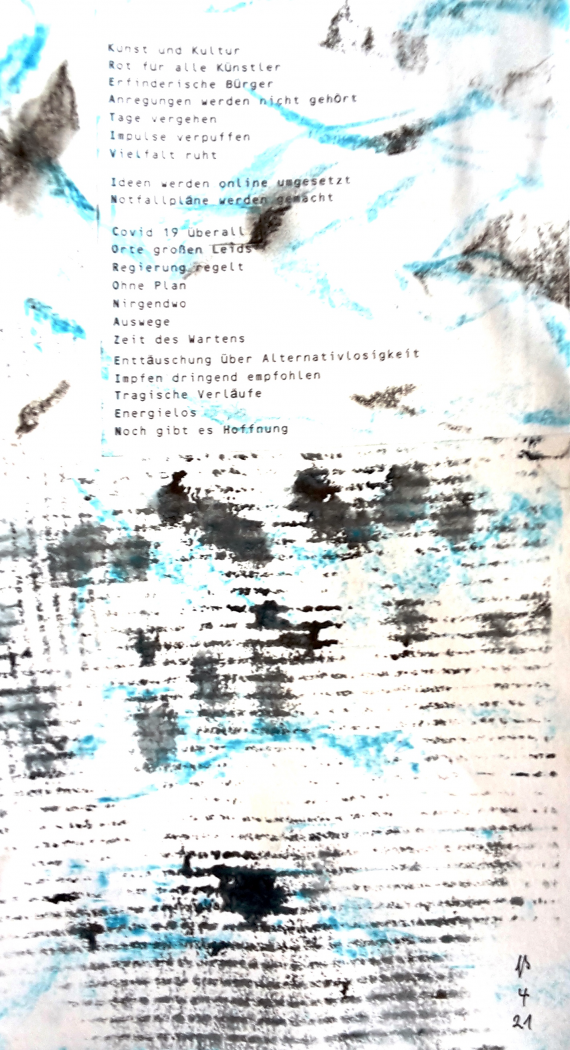 Kunst und Kultur
Rot für alle Künstler
Erfinderische Bürger
Anregungen werden nicht gehört
Tage vergehen
Impulse verpuffen
Vielfalt ruht
Ideen werden online umgesetzt
Notfallpläne werden gemacht
Covid 19 überall
Orte großen Leids
Regierung regelt
Ohne Plan
Nirgendwo
Auswege
Zeit des Wartens
Enttäuschung über Alternativlosigkeit
Impfen dringend empfohlen
Tragische Verläufe
Energielos
Noch gibt es Hoffnung
4
21